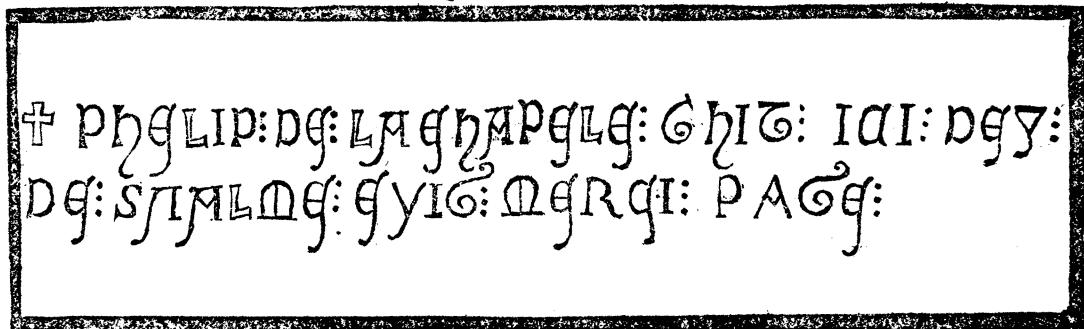 ✝ PHELIP⁝ DE⁝ LACHAPELE⁝ GHIT⁝ ICI⁝ DEY⁝
DE⁝ SAALME⁝ EYIT⁝ MERCI⁝ PATE⁝